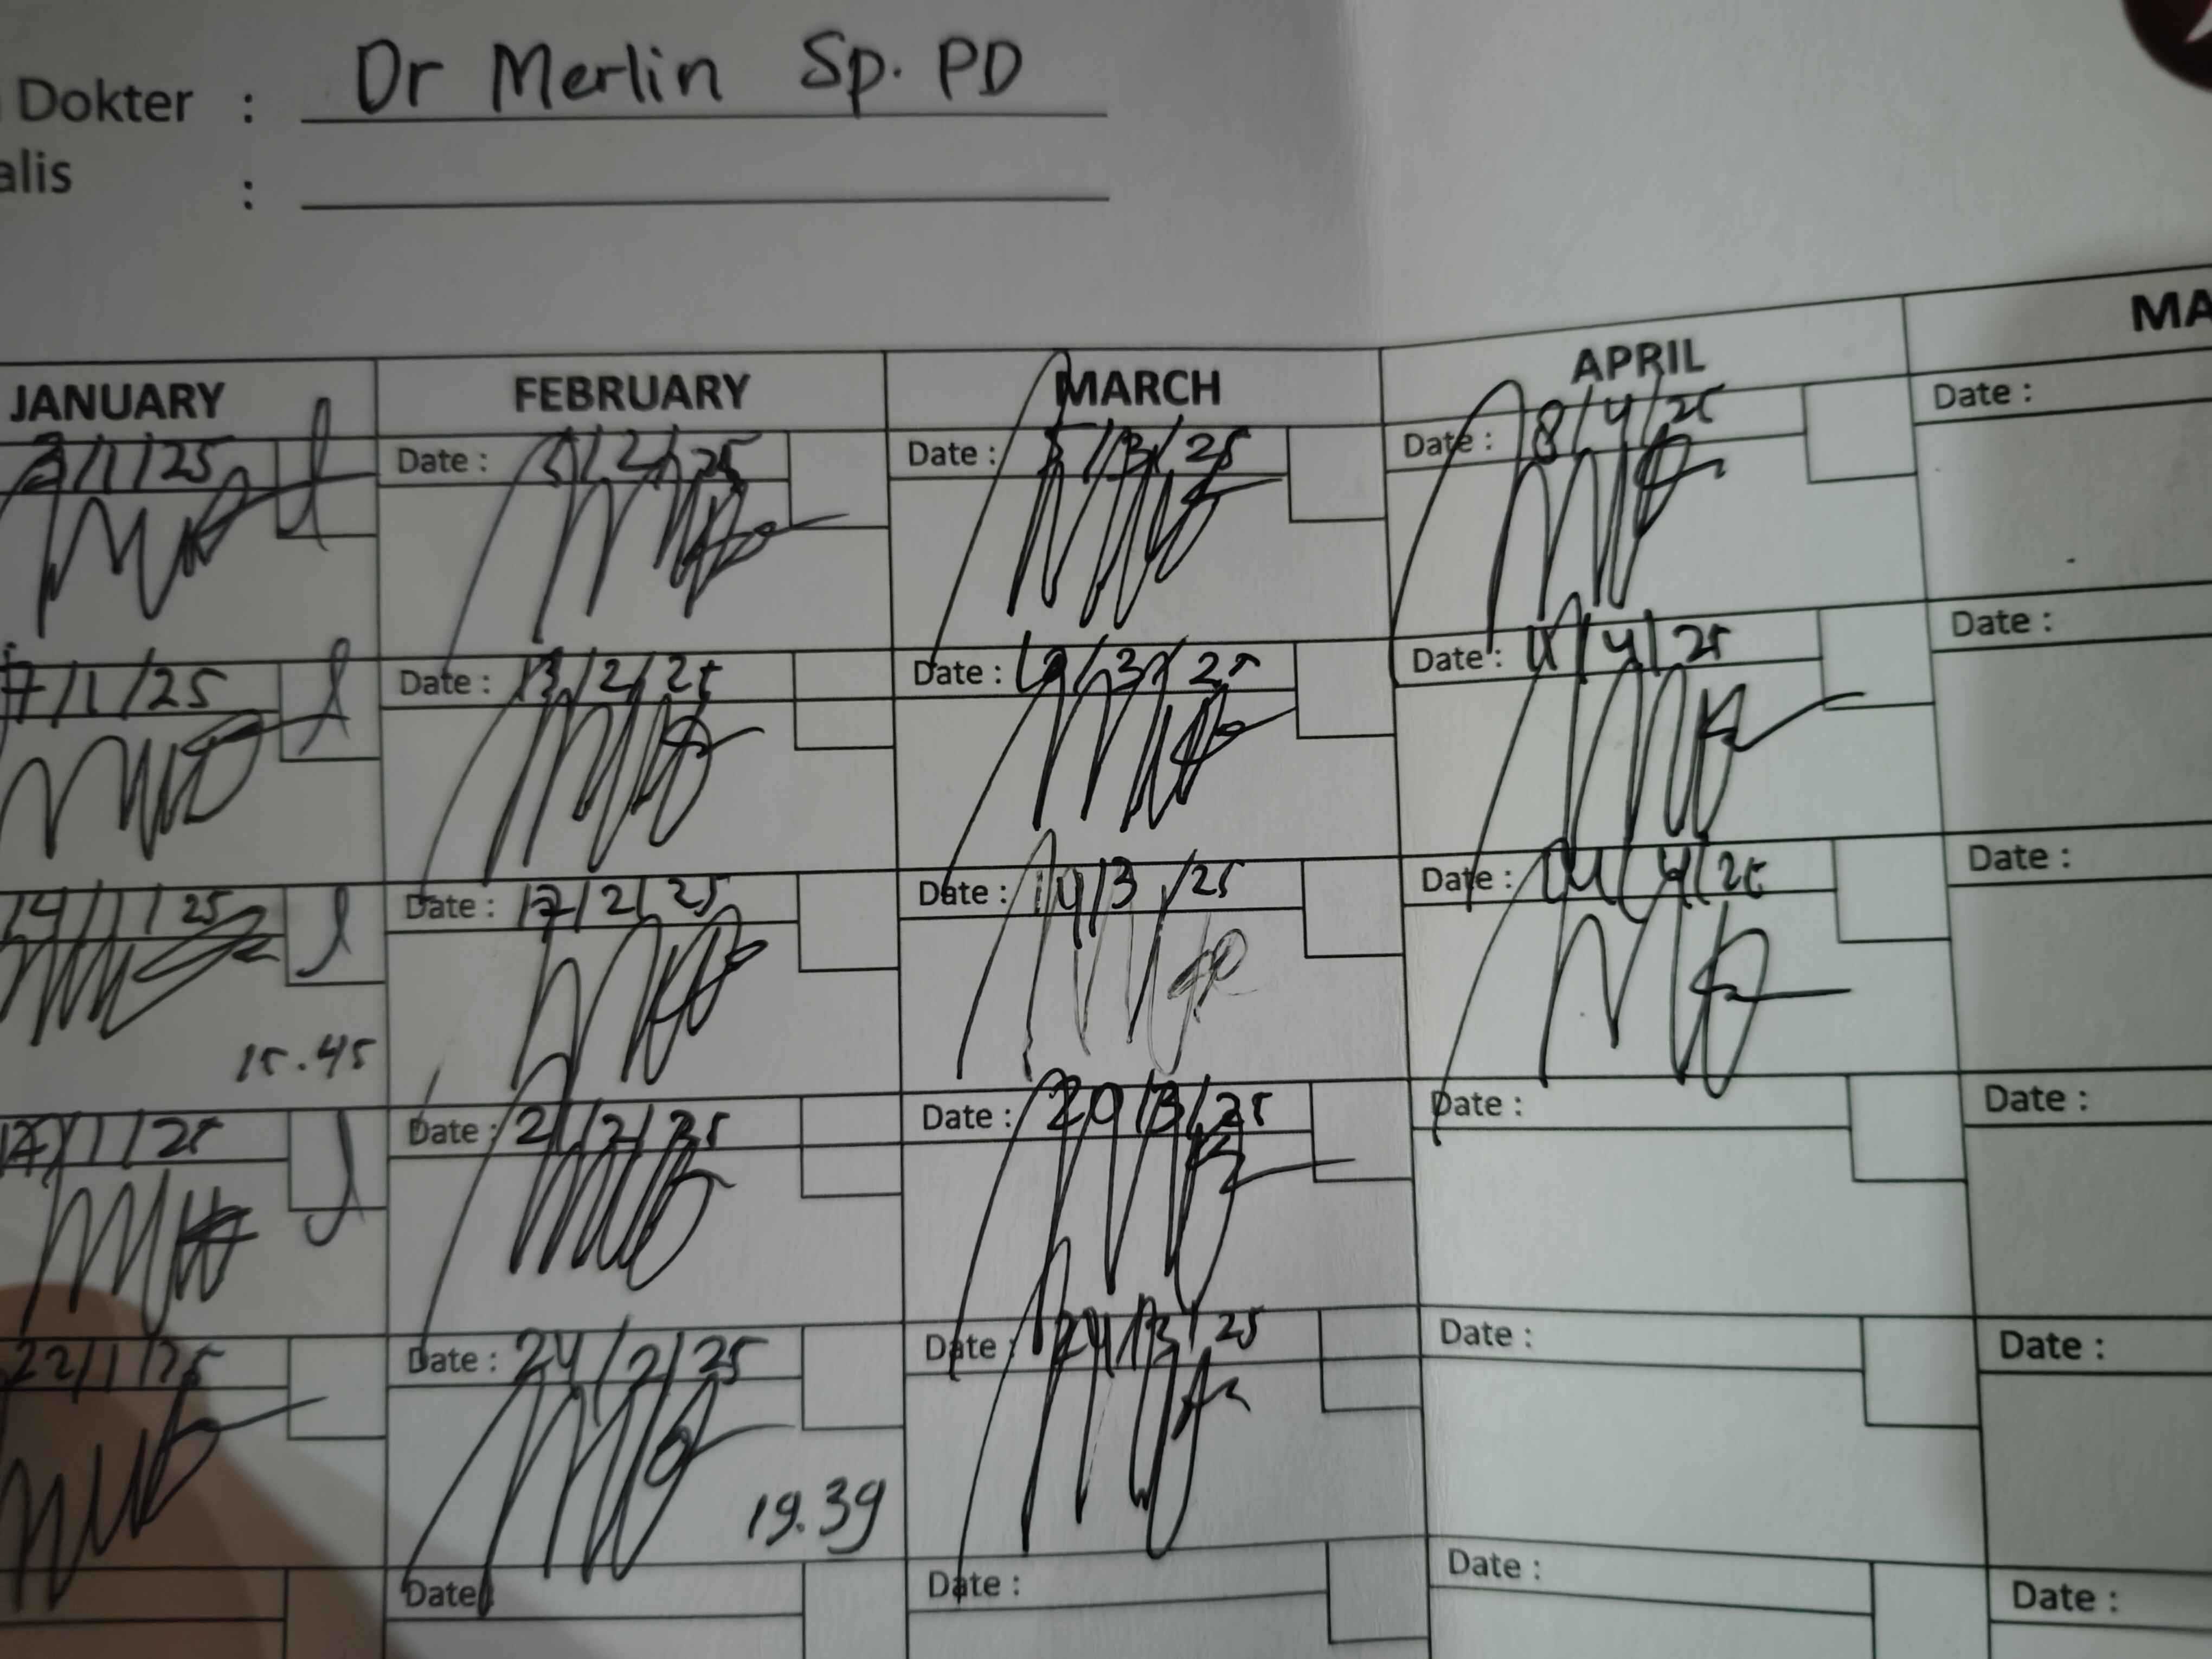 Dokter : Dr Merlin Sp. PD
alis :
JANUARY FEBRUARY MARCH APRIL MA
3/1/25 Date : 3/2/25 Date : 5/3/25 Date : 8/4/25 Date :
7/1/25 Date : 13/2/25 Date : 3/25 Date : 11/4/25 Date :
14/1/25 Date : 17/2/25 Date : 14/3/25 Date : 14/4/25 Date :
15.45
17/1/25 Date : 21/2/25 Date : 20/3/25 Date : Date :
22/1/25 Date : 24/2/25 Date : 24/3/25 Date : Date :
19.39
Date Date : Date : Date :